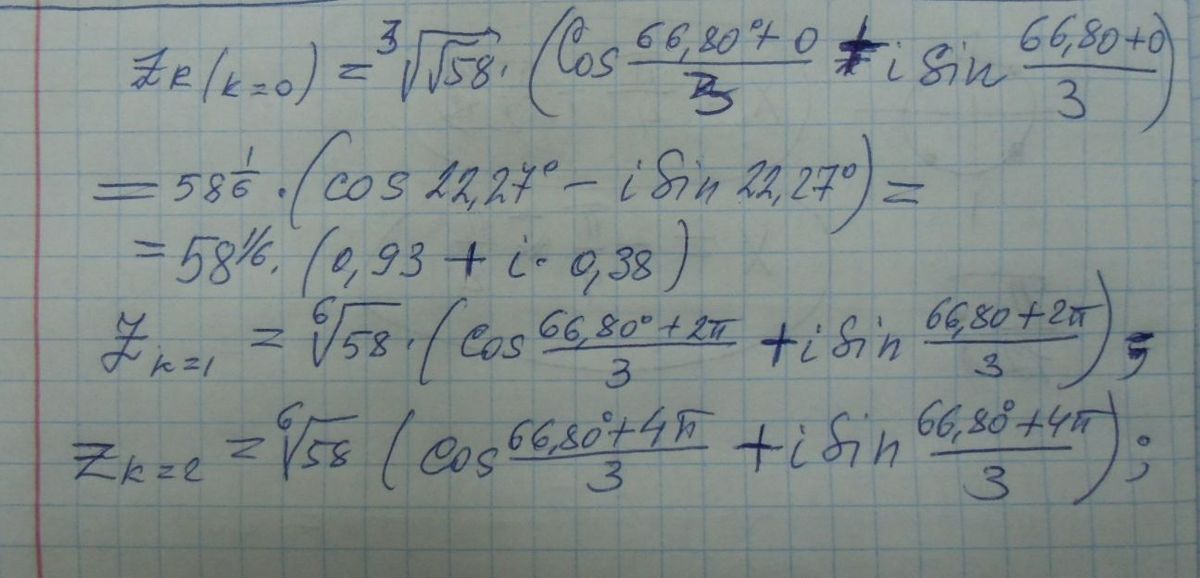 Z_{k(k=0)} = ∛√58 · (Cos (66,80°+0)/3 + i Sin (66,80+0)/3)
= 58^{1/6} · (cos 22,27° − i Sin 22,27°) =
= 58^{1/6} · (0,93 + i · 0,38)
Z_{k=1} = ⁶√58 · (cos (66,80° + 2π)/3 + i Sin (66,80 + 2π)/3) ;
Z_{k=2} = ⁶√58 (cos (66,80° + 4π)/3 + i Sin (66,80° + 4π)/3) ;